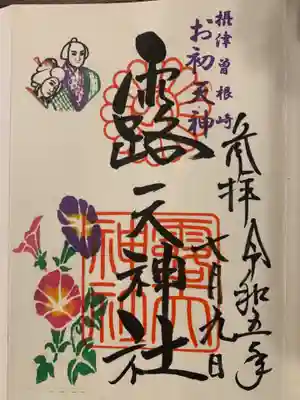 摂津曽根崎
お初天神
奉拝 令和五年
七月九日
露天神社
露天
神社